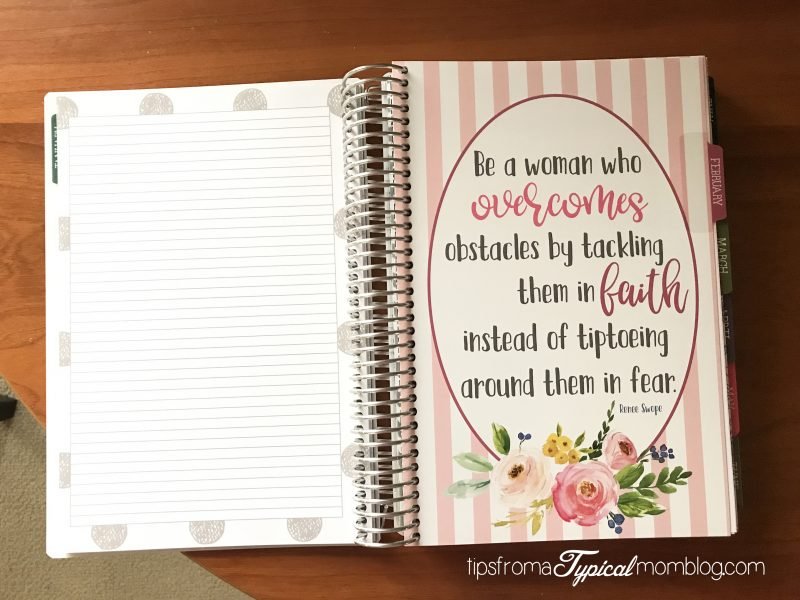 Be a woman who
overcomes
obstacles by tackling
them in faith
instead of tiptoeing
around them in fear.
Renee Swope
FEBRUARY
MARCH
tipsfromaTypicalmomblog.com